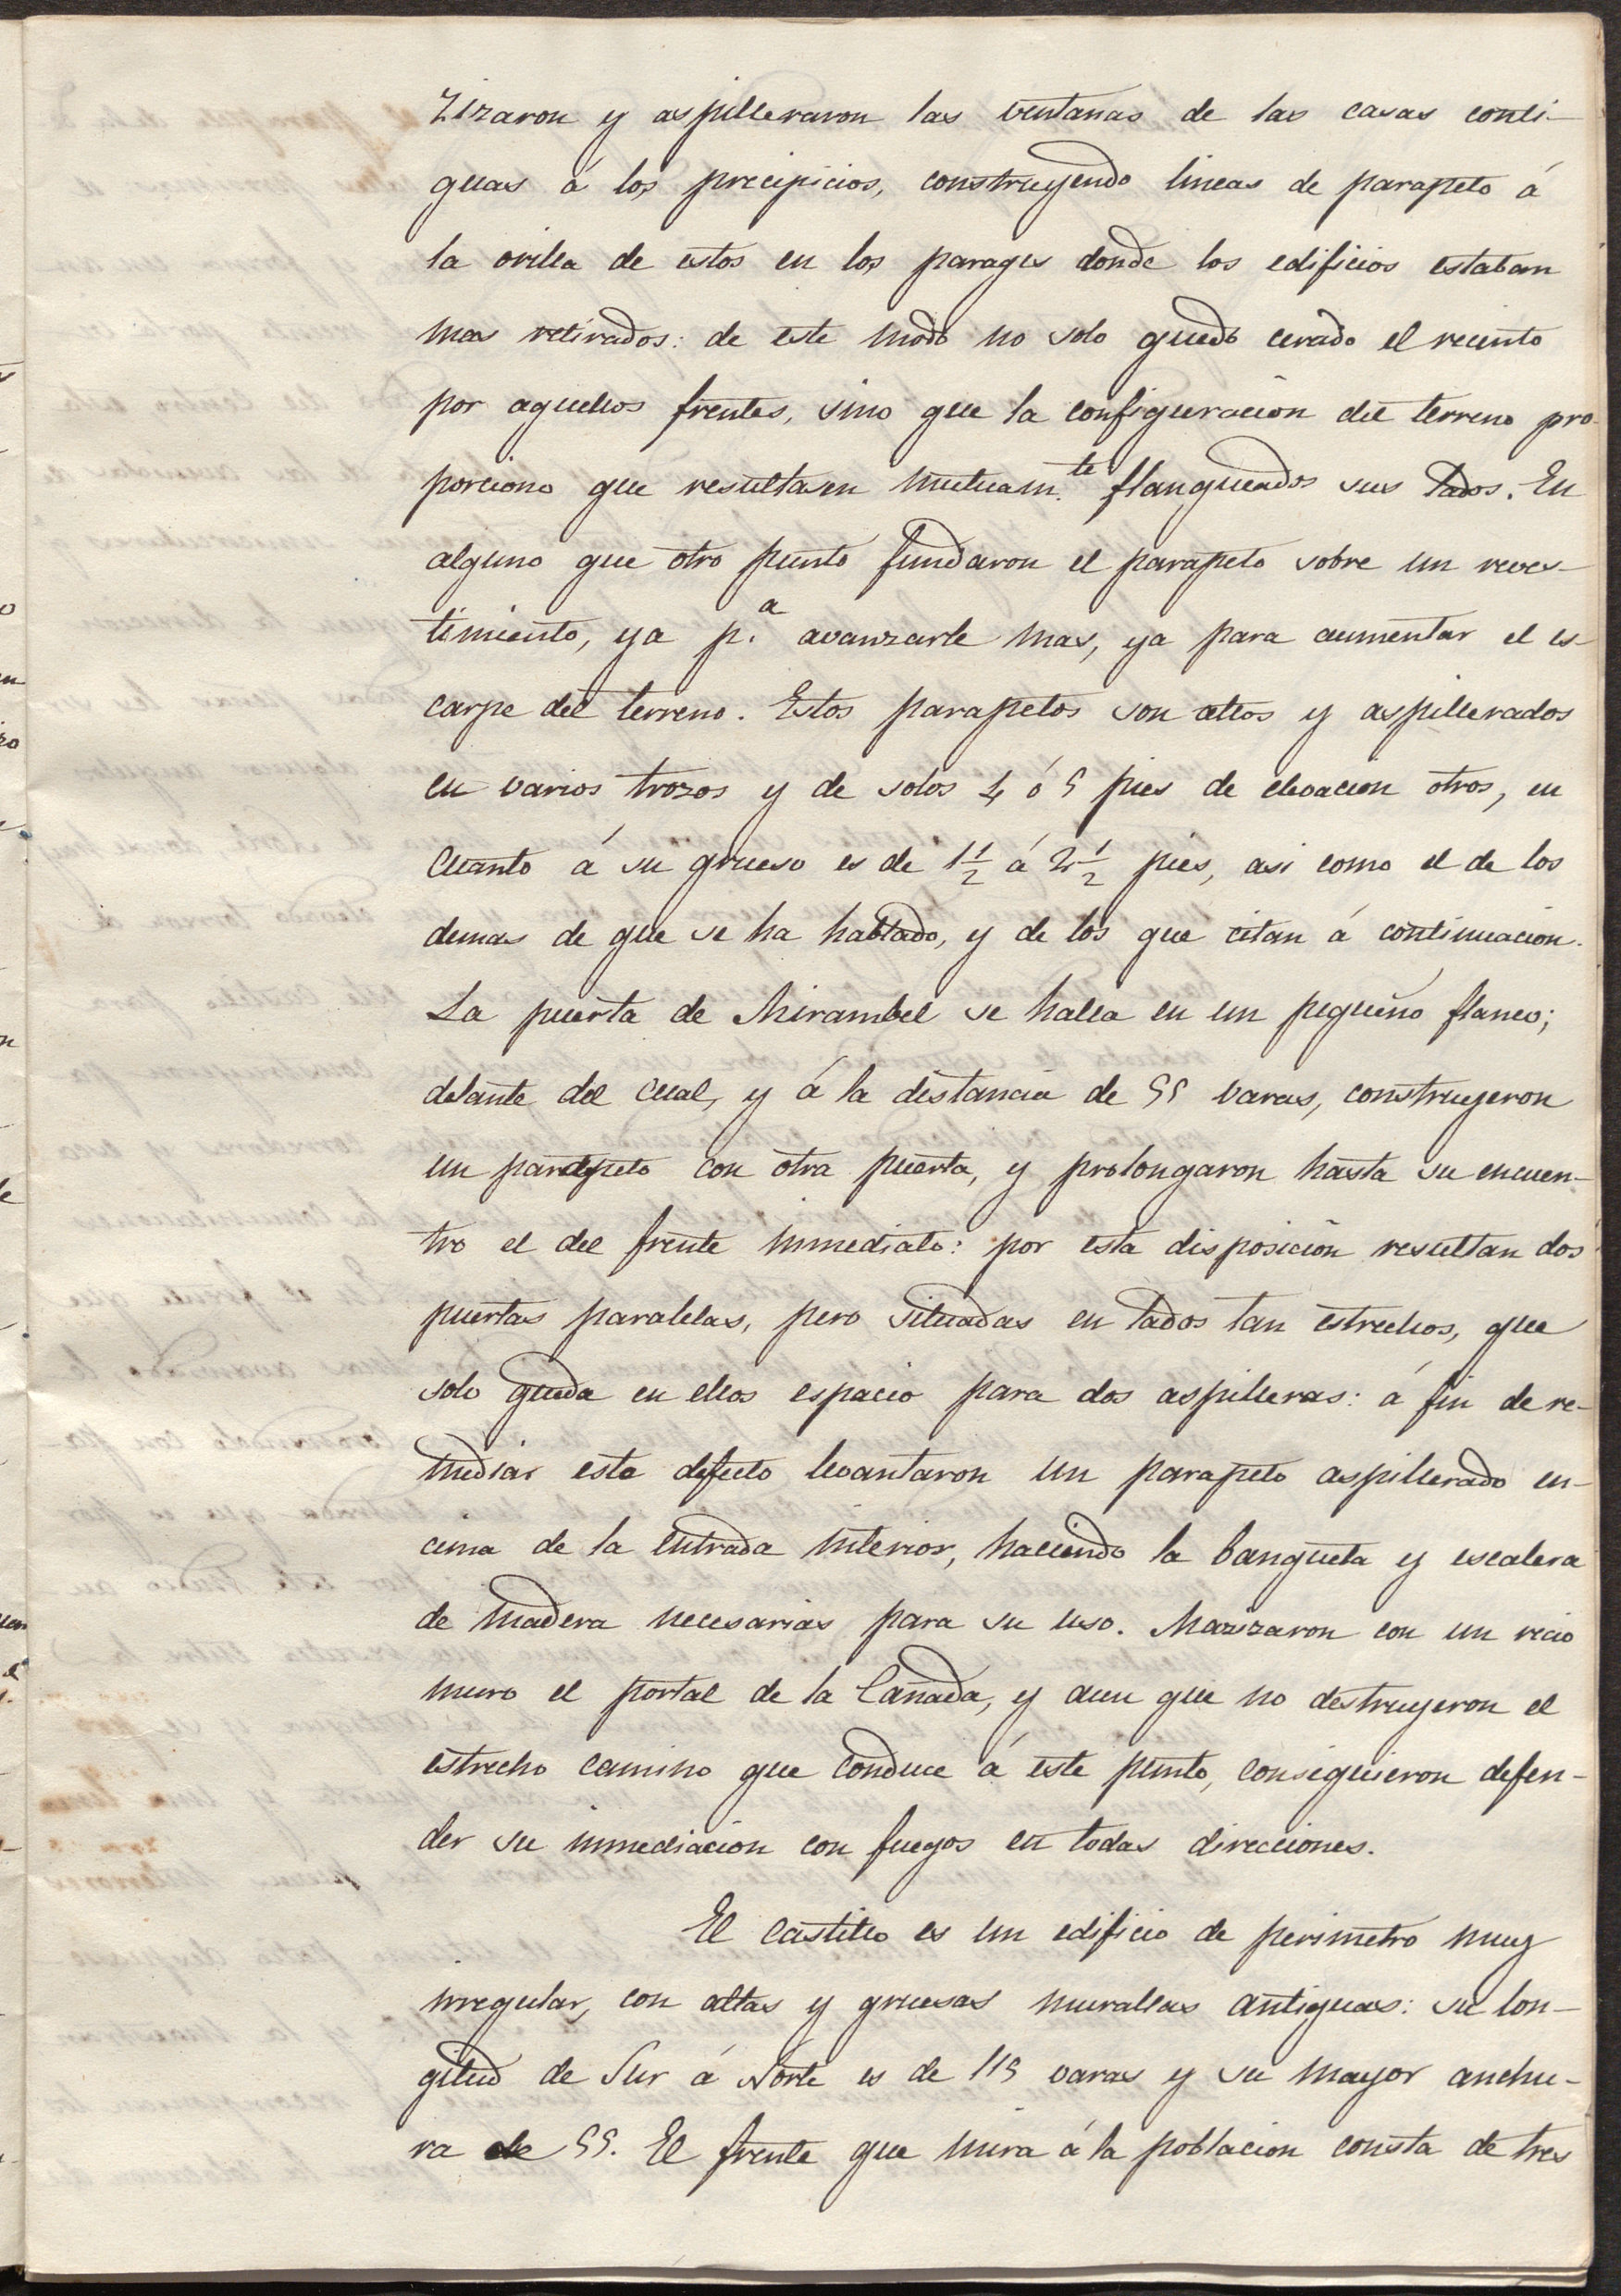 zizaron y aspilleraron las ventanas de las casas conti-
guas á los precipicios, construyendo lineas de parapeto á
la orilla de estos en los parages donde los edificios estaban
mas retirados: de este modo no solo quedó cerado el recinto
por aquellos frentes, sino que la configuracion del terreno pro-
porciono que resultasen mutuam.te flanqueados sus lados. En
alguno que otro punto fundaron el parapeto sobre un reves-
timiento, ya p.a avanzarle mas, ya para aumentar el es-
carpe del terreno. Estos parapetos son altos y aspillerados
en varios trozos y de solos 4 ó 5 pies de elevacion otros, en
cuanto á su grueso es de 1 1/2 á 2 1/2 pies, asi como el de los
demas de que se ha hablado, y de los que citan á continuacion.
La puerta de Mirambel se halla en un pequeño flanco;
delante del cual, y á la distancia de 55 varas, construyeron
un parapeto con otra puerta, y prolongaron hasta su encuen-
tro el del frente inmediato: por esta disposicion resultan dos
puertas paralelas, pero situadas en lados tan estrechos, que
solo queda en ellos espacio para dos aspilleras: á fin de re-
mediar este defecto levantaron un parapeto aspillerado en-
cima de la entrada interior, haciendo la banqueta y escalera
de madera necesarias para su uso. Mazizaron con un recio
muro el portal de la Cañada, y aun que no destruyeron el
estrecho camino que conduce á este punto, consiguieron defen-
der su inmediacion con fuegos en todas direcciones.
El castillo es un edificio de perimetro muy
irregular, con altas y gruesas murallas antiguas: su lon-
gitud de Sur á Norte es de 115 varas y su mayor anchu-
ra de 55. El frente que mira á la poblacion consta de tres